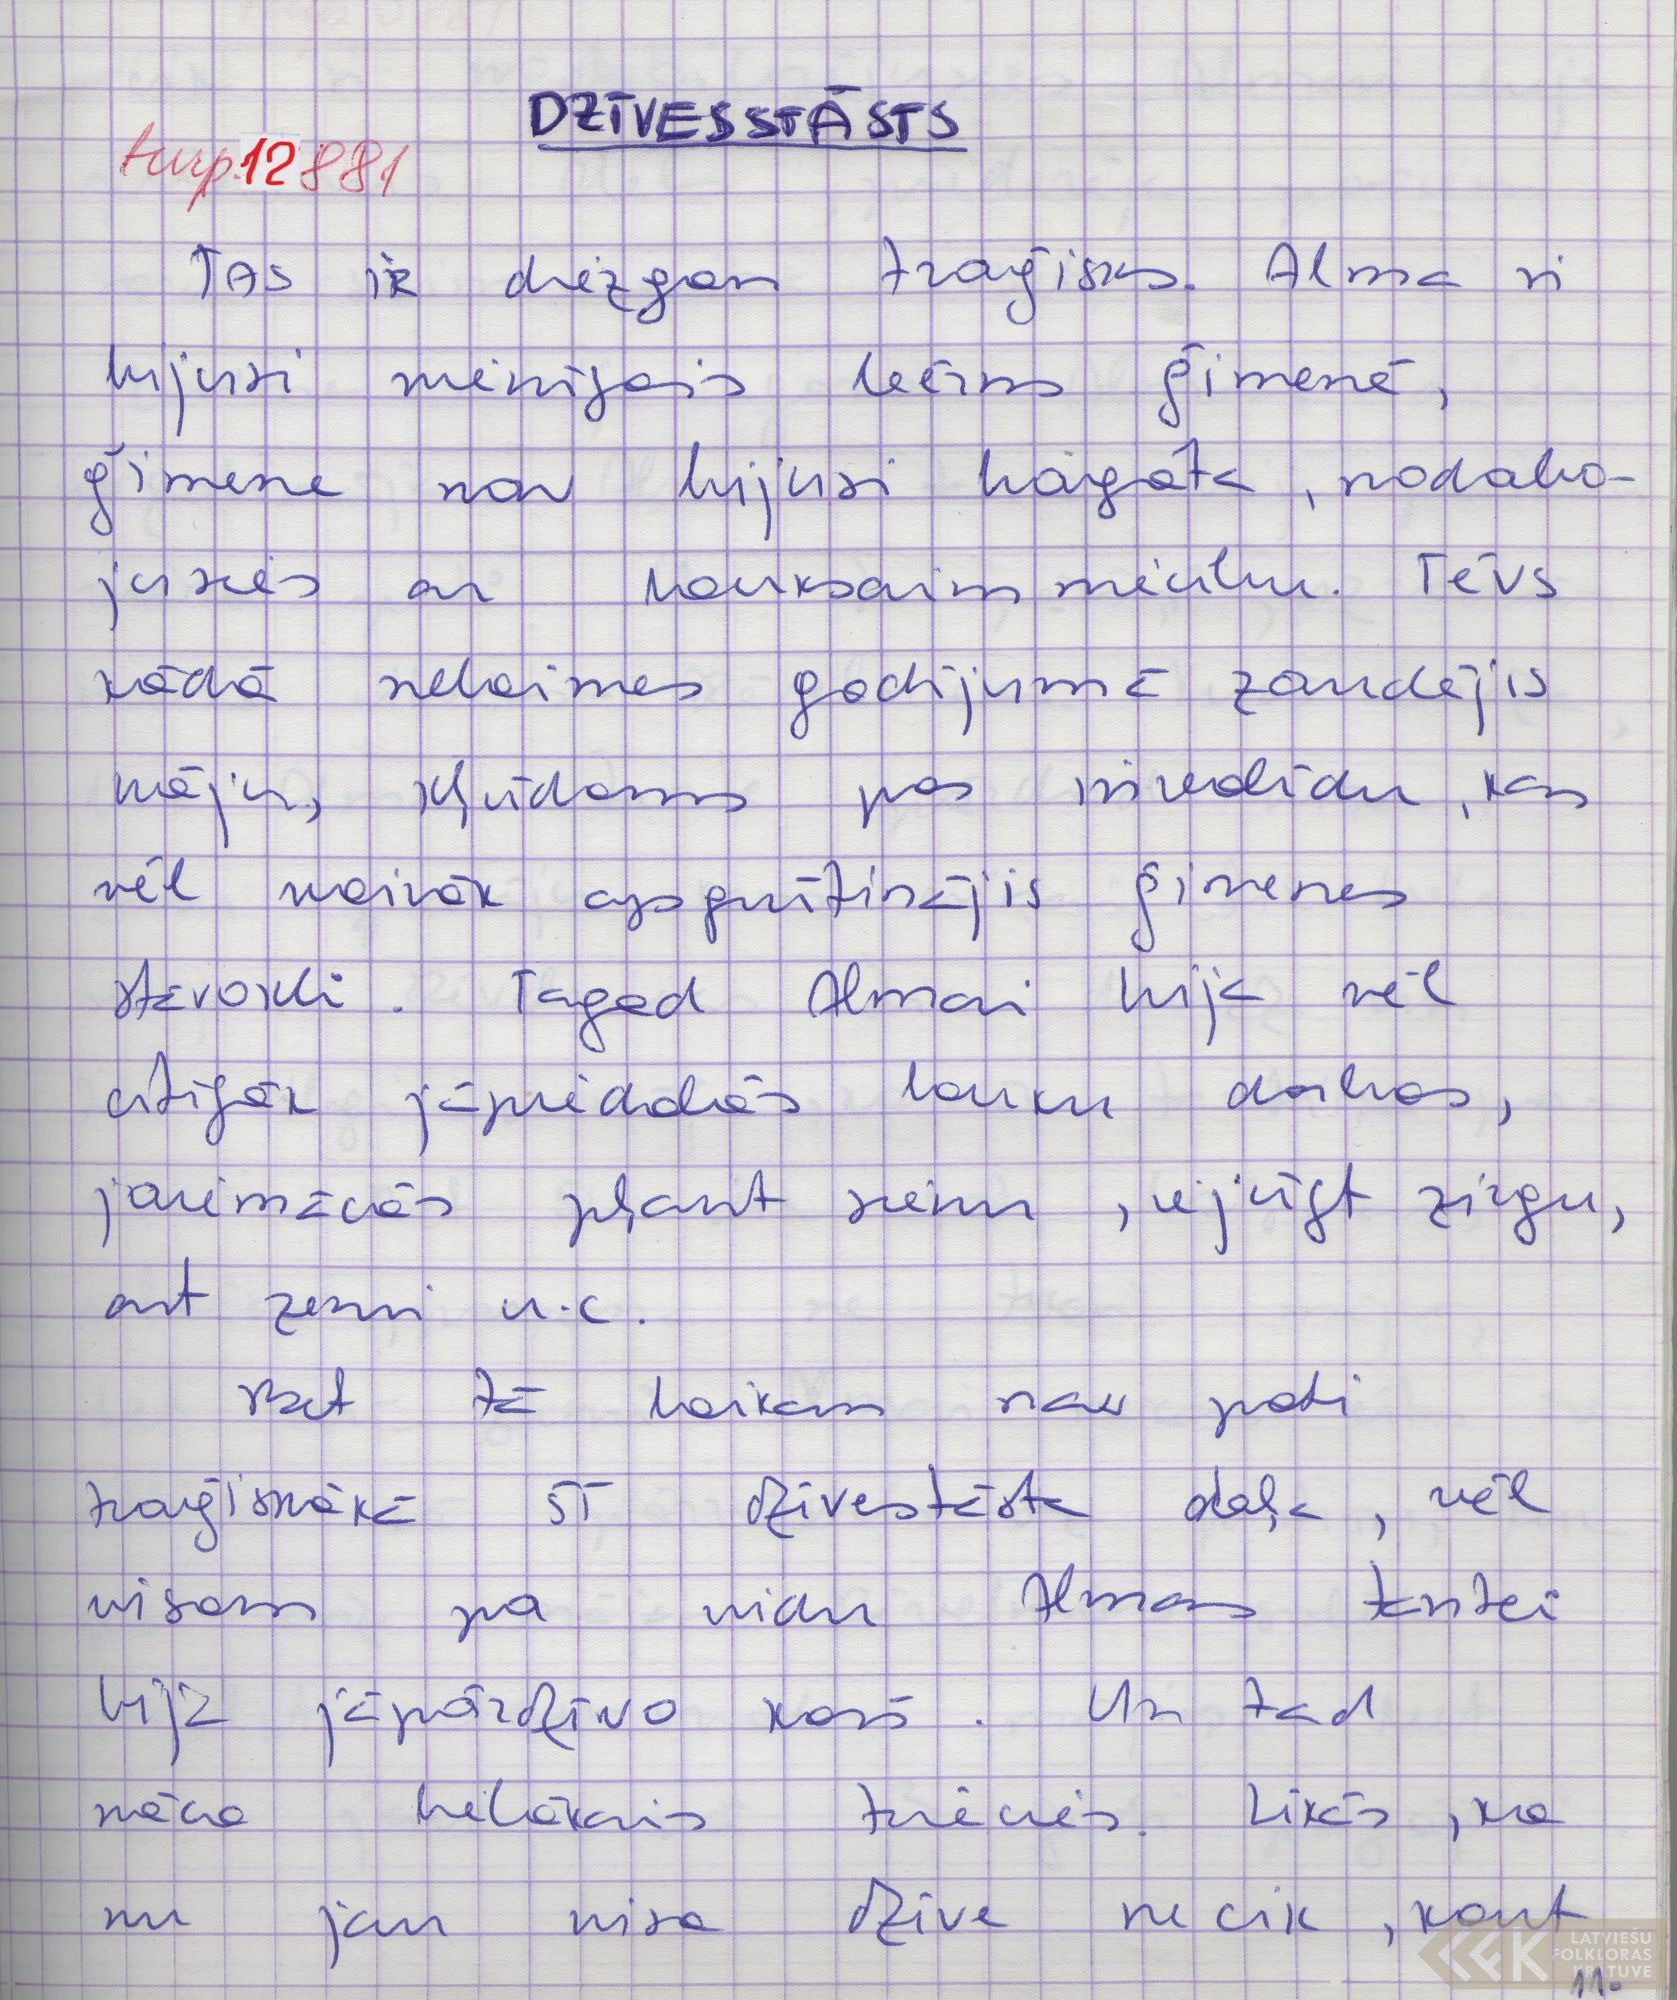 DZĪVESSTĀSTS
turp. 12881
Tas ir diezgan traģisks. Alma ir
bijusi vienīgais bērns ģimenē,
ģimene nav bijusi bagāta, nodabo-
jusies ar lauksaimniecību. Tēvs
kādā nelaimes gadījumā zaudējis
māju, kļūdams par invalīdu, kas
vēl vairāk apgrūtinājis ģimenes
stāvokli. Tagad Almai bija vēl
cītīgāk jāpiedalās lauku darbos,
jāiemācās pļaut sienu, iejūgt zirgu,
art zemi u.c.
Bet tā laikam nav pati
traģiskākā šī dzīvestāsta daļa, vēl
visam pa vidu Almas tantei
bija jāpārdzīvo karš. Un tad
nāca lielākais trieciens. Likās, ka
nu jau visa dzīve necik, kaut
LATVIEŠU
FOLKLORAS
KRĀTUVE
11.